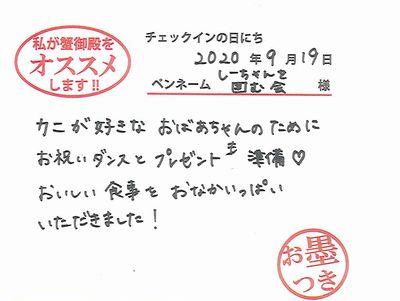 私が蟹御殿を
オススメ
します!!
チェックインの日にち
2020年9月19日
ペンネーム しーちゃんを囲む会 様
カニが好きな おばあちゃんのために
お祝いダンスと プレゼントを 準備♡
おいしい 食事を おなかいっぱい
いただきました!
お墨
つき